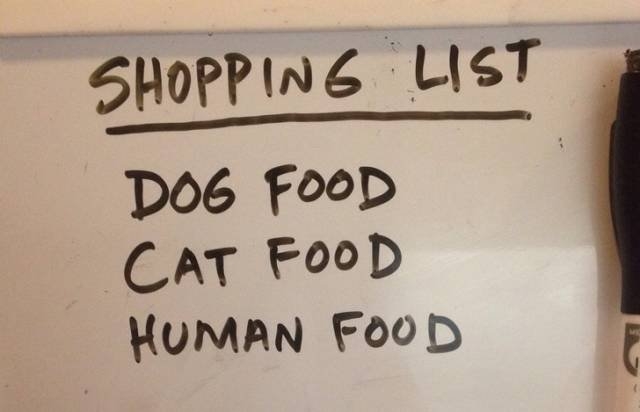 SHOPPING LIST
DOG FOOD
CAT FOOD
HUMAN FOOD